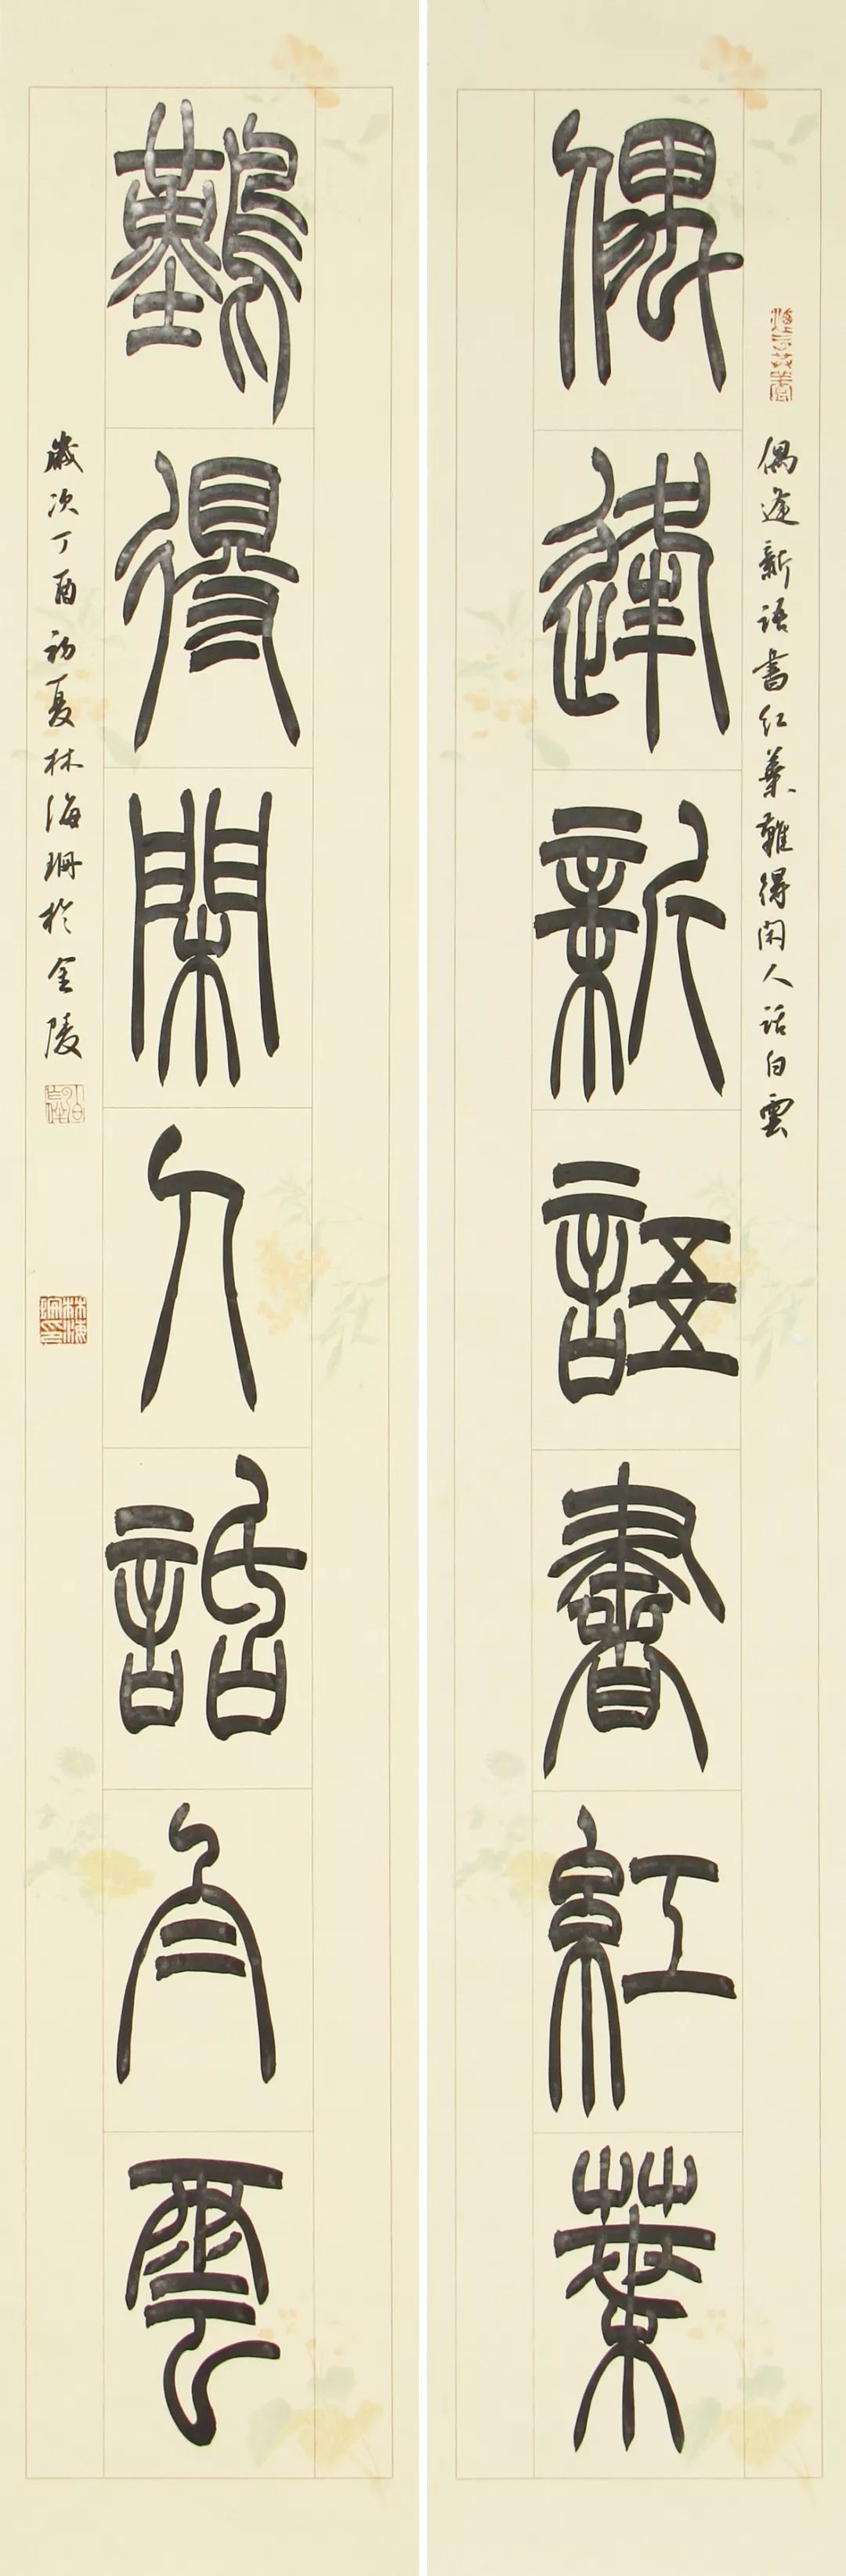 偶逢新語書紅葉
難得閒人話白雲
偶逢新語書红葉難得闲人話白雲
歲次丁酉初夏林海珊於金陵